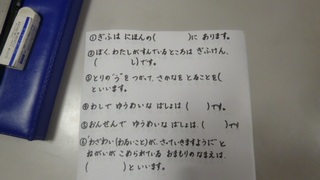 ①ぎふは にほんの(　　　)に あります。
②ぼく、わたしがすんでいるところは ぎふけん、
(　　　し)です。
③とりの"う"を つかって、さかなを とることを(
と いいます。
④わしで ゆうめいな ばしょは (　　)です
⑤おんせんで ゆうめいな ばしょは、(　　)です
⑥"わざわい(わるいこと)が、さっていきますように"と
ねがいが こめられている おまもりの なまえは、
(　　　)と いいます。